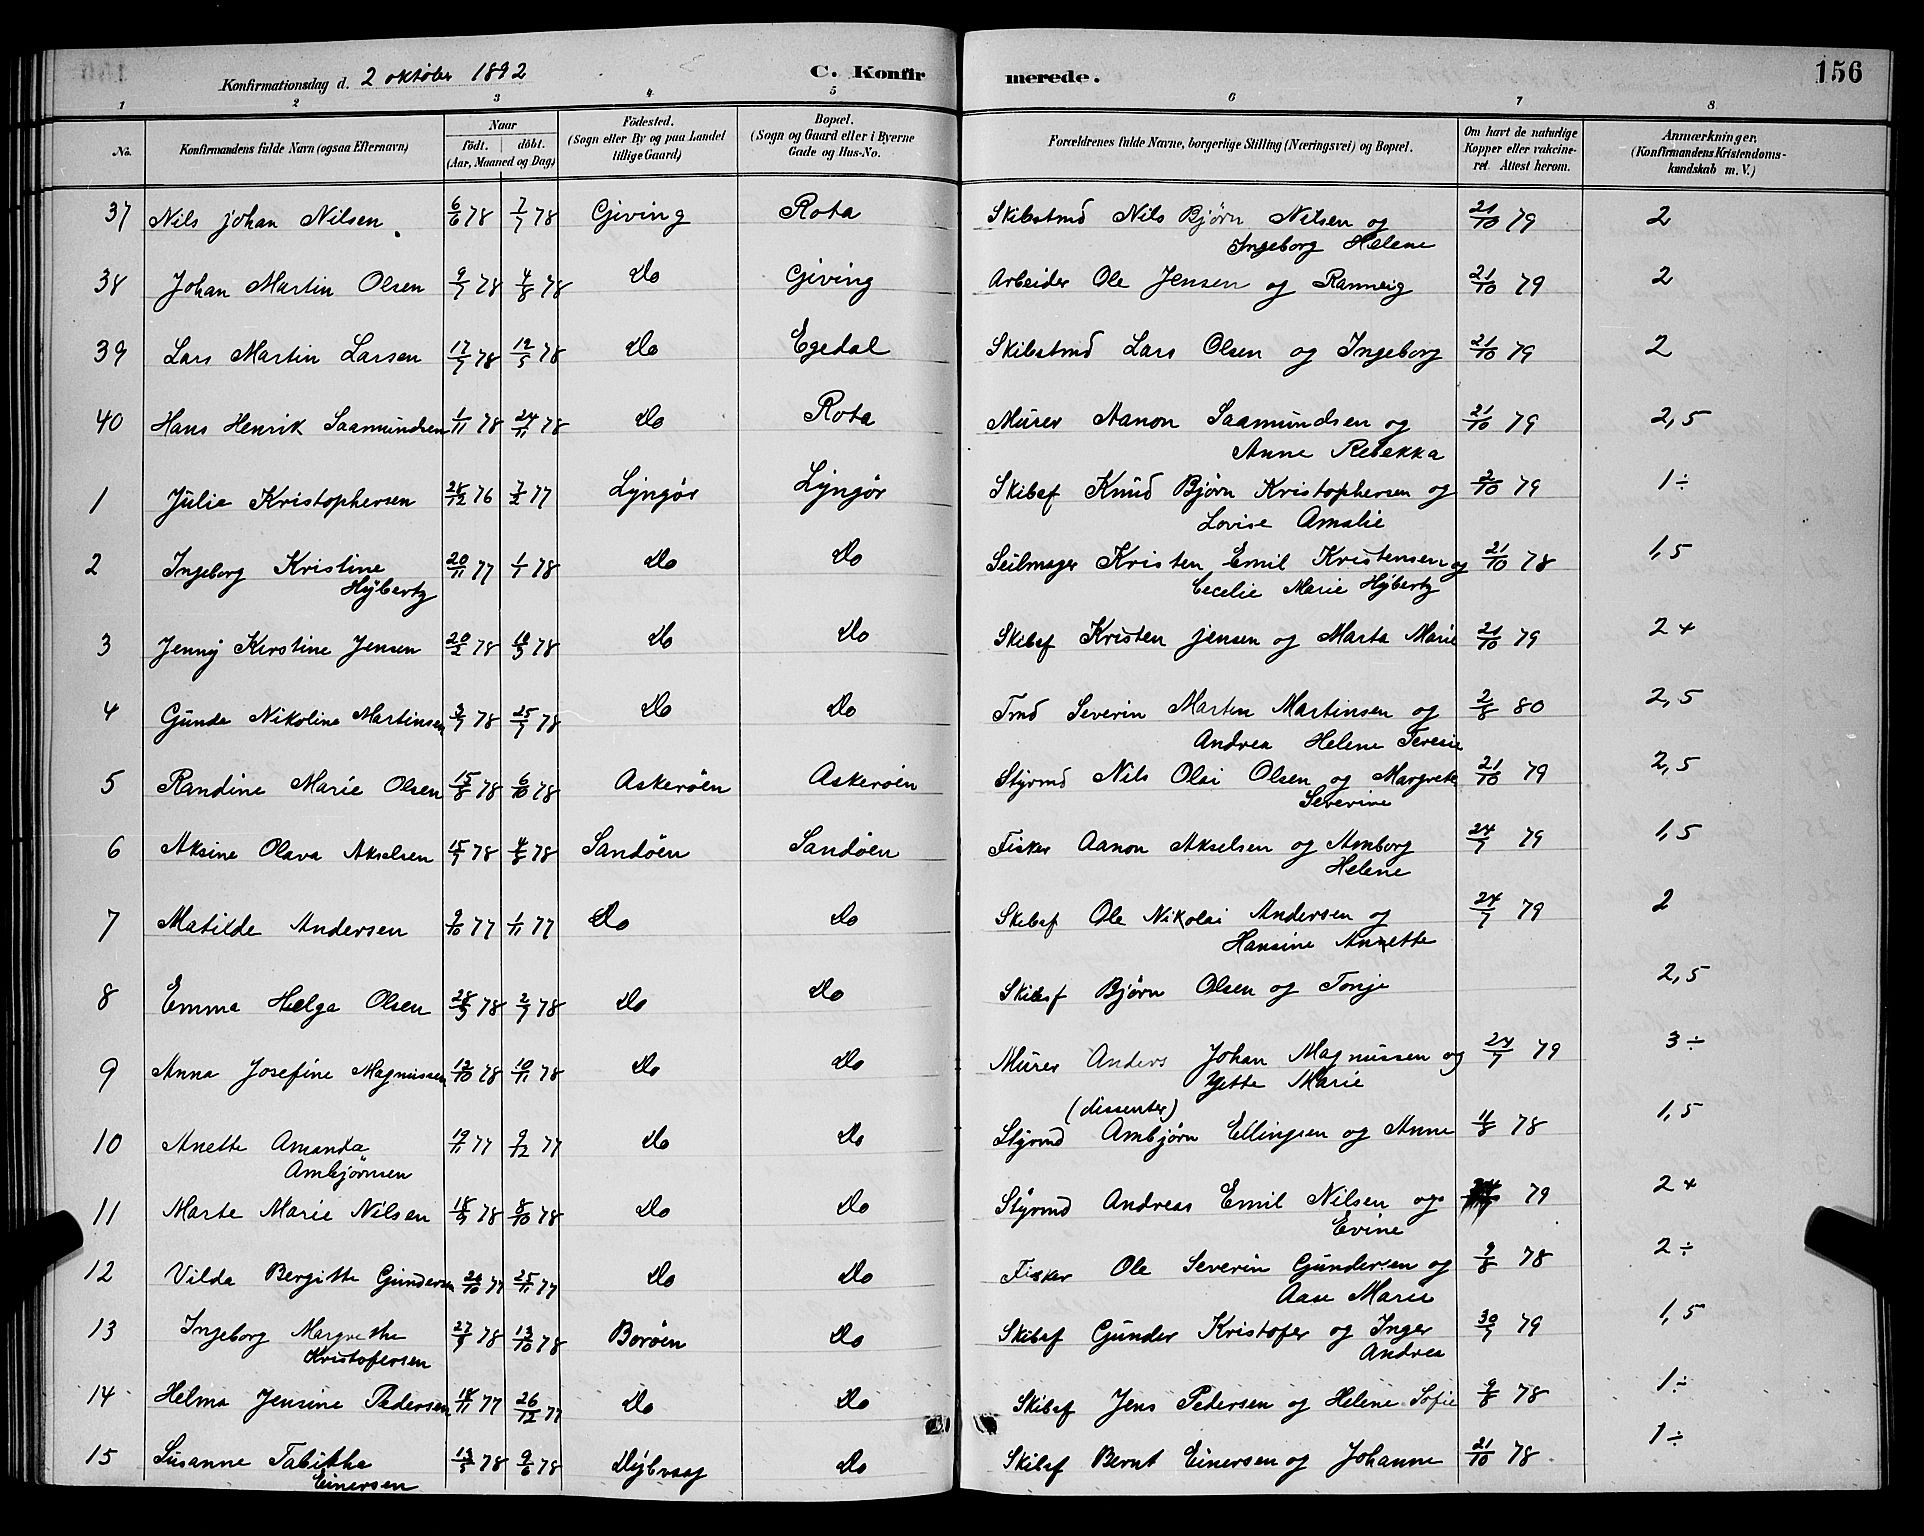 Konfirmationsdag d. 2 oktober 1892 C. Konfirmerede. 156
1 2 3 4 5 6 7 8
No. Konfirmandens fulde Navn (ogsaa Efternavn) Naar Födt. döbt. (Aar, Maaned og Dag) Födested. (Sogn eller By og paa Landet tillige Gaard) Bopæl. (Sogn og Gaard eller i Byerne Gade og Hus-No. Forældrenes fulde Navne, borgerlige Stilling (Næringsvei) og Bopæl. Om havt de naturlige Kopper eller vakcineret. Attest herom. Anmærkninger. (Konfirmandens Kristendomskundskab m. V.)
37 Nils Johan Nilsen 6/6 78 7/7 78 Gjving Rota Skibstmd Nils Bjørn Nilsen og 21/10 79 2
Ingeborg Helene
38 Johan Martin Olsen 9/7 78 4/8 78 Do Gjving Arbeider Ole Jensen og Ranneig 21/10 79 2
39 Lars Martin Larsen 78 78 Do Egedal Skibstmd Lars Olsen og Ingeborg 21/10 79 2
40 Hans Henrik Saamundsen 1/11 78 24/11 78 Do Rota Murer Aanon Saamundsen og 21/10 79 2,5
Anne Rebekka
1 Julie Kristophersen 76 7/2 77 Lyngör Lyngör Skibsf Knud Bjørn Kristophersen og 79 1÷
Lovise Amalie
2 Ingeborg Kristine 20/11 77 1/1 78 Do Do Seilmager Kristen Emil Kristensen og 21/10 78 1,5
Hybertz Cecelie Marie Hybertz
3 Jenny Kirstine Jensen 20/2 78 78 Do Do Skibsf Kristen Jensen og Marta Marie 21/10 79 2+
4 Gunda Nikoline Martinsen 3/7 78 25/7 78 Do Do Tmd Severin Martin Martinsen og 2/8 80 2,5
Andrea Helene Teresie
5 Randine Marie Olsen 15/8 78 6/10 78 Askeröen Askeröen Styrmd Nils Olai Olsen og Margrete 21/10 79 2,5
Severine
6 Aksine Olava Akselsen 15/7 78 4/8 78 Sandöen Sandöen Fisker Aanon Akselsen og Amborg 24/7 79 1,5
Helene
7 Matilde Andersen 2/10 77 1/11 77 Do Do Skibsf Ole Nikolai Andersen og 24/7 79 2
Hansine Annette
8 Emma Helga Olsen 78 2/7 78 Do Do Skibsf Bjørn Olsen og Tonje 2,5
9 Anna Josefine Magnussen 12/10 78 10/11 78 Do Do Murer Anders Johan Magnussen og 24/7 79 3÷
Yette Marie
(dissenter)
10 Anette Amanda 77 9/12 77 Do Do Styrmd Ambjørn Ellingsen og Anne 78 1,5
Ambjørnsen
11 Marte Marie Nilsen 78 78 Do Do Styrmd Andreas Emil Nilsen og 79 2+
Evine
12 Vilda Bergitte Gundersen 77 25/11 77 Do Do Fisker Ole Severin Gundersen og 9/8 78 2÷
Aase Marie
13 Ingeborg Margrethe 27/9 78 13/10 78 Boröen Do Skibsf Gunder Kristofer og Inger 30/7 79 1,5
Kristofersen Andrea
14 Helma Jensine Pedersen 77 26/12 77 Do Do Skibsf Jens Pedersen og Helene Sofie 9/8 78 1÷
15 Susanne Tabitha 13/5 78 9/6 78 Dybvaag Do Skibsf Bernt Einersen og Johanne 21/10 78 1÷
Einersen